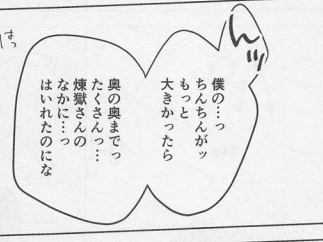 はっ
んッ
僕の…っ
ちんちんがッ
もっと
大きかったら
奥の奥までっ
たくさんっ…
煉獄さんの
なかに…っ
はいれたのにな